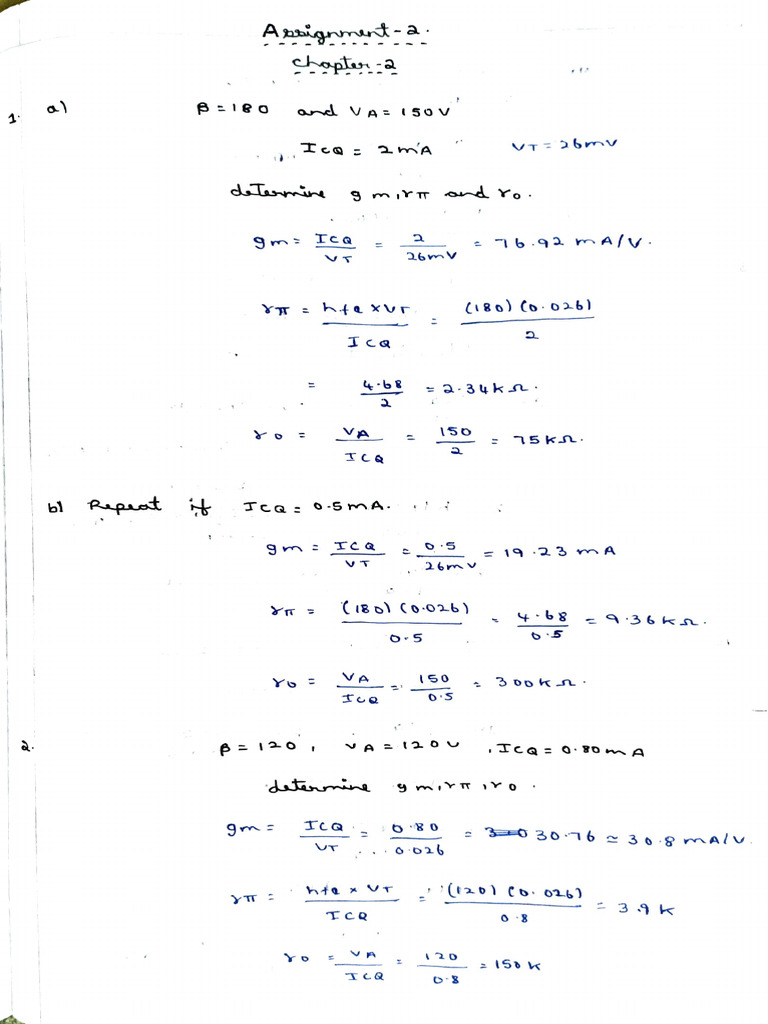 Assignment-2.
Chapter-2
1. a) β=180 and VA=150V
ICQ = 2mA VT=26mV
determine gm,rπ and ro.
gm = ICQ/VT = 2/26mV = 76.92 mA/V.
rπ = hfe×VT/ICQ = (180)(0.026)/2
= 4.68/2 = 2.34kΩ.
ro = VA/ICQ = 150/2 = 75kΩ.
b) Repeat if ICQ=0.5mA.
gm = ICQ/VT = 0.5/26mV = 19.23 mA
rπ = (180)(0.026)/0.5 = 4.68/0.5 = 9.36kΩ.
ro = VA/ICQ = 150/0.5 = 300kΩ.
2. β=120, VA=120V, ICQ=0.80mA
determine gm,rπ,ro.
gm = ICQ/VT = 0.80/0.026 = 30.76 ≃ 30.8 mA/V.
rπ = hfe×VT/ICQ = (120)(0.026)/0.8 = 3.9K
ro = VA/ICQ = 120/0.8 = 150K